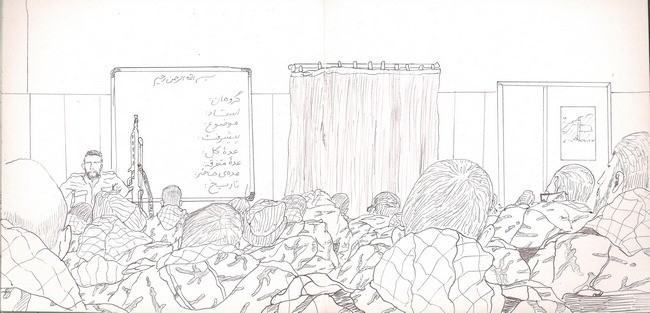 بسم الله الرحمن الرحیم
گروهان:
استاد:
موضوع:
پیشرفت:
عدهٔ کل:
عدهٔ متفرقه:
عده‌ی حاضر:
تاریخ: